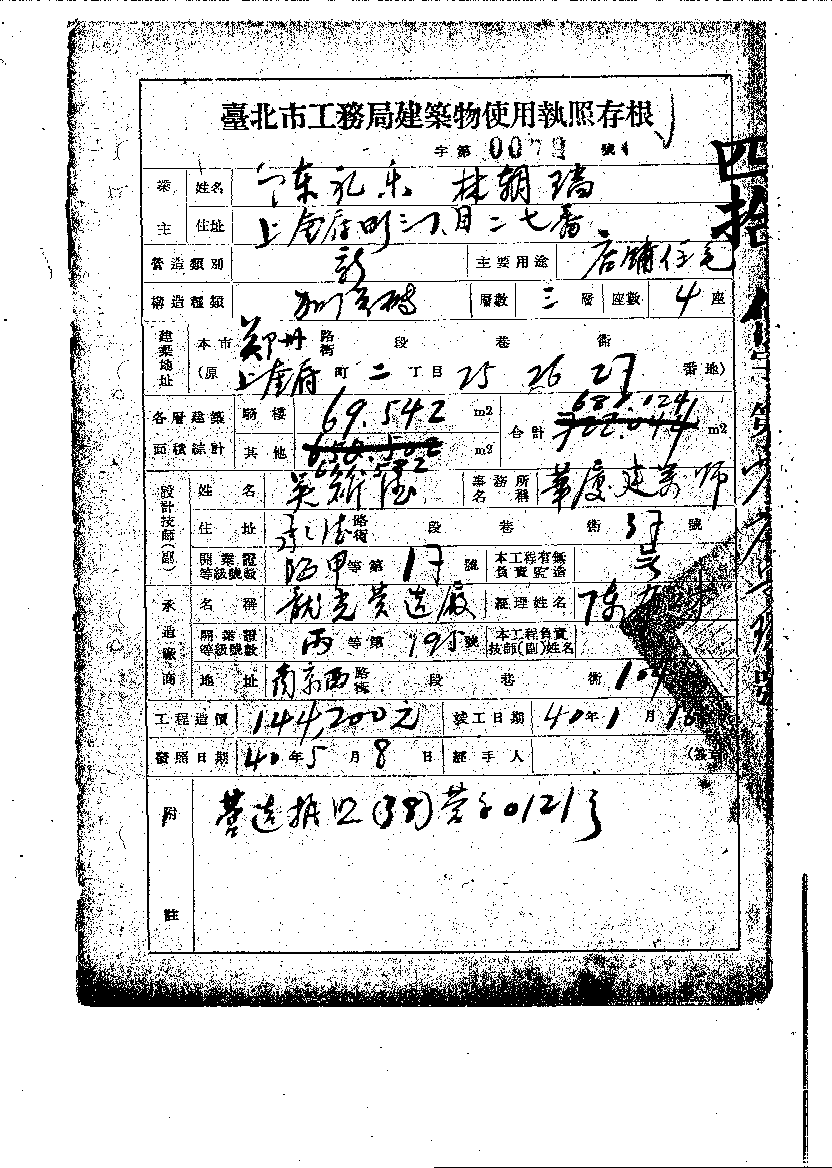 臺北市工務局建築物使用執照存根
字第 0079 號
業主 姓名 陳 林朝瑞
住址 上奎府町三丁目二七番
營造類別 新 主要用途 店舖住宅
構造種類 加強磚 層數 三 層 座數 4 座
建築地址 本市 鄭州 路街 段 巷 衖
(原 上奎府 町 二 丁目 25 26 27 番地)
各層建築面積綜計 騎樓 69.542 m2 合計 m2
其他 m2
設計技師(副) 姓名 吳 事務所名稱 華廈建築師
住址 承德 路街 段 巷 衖 37 號
開業證等級號數 甲 等第 17 號 本工程有無負責監造
承造廠商 名稱 龍光營造廠 經理姓名 陳
開業證等級號數 丙 等第 195 號 本工程負責技師(副)姓名
地址 南京西 路街 段 巷 衖 109
工程造價 144,200元 竣工日期 40年1月16
發照日期 40年5月8日 經手人 (簽
附註 營造執照(38)營字0121号
四拾